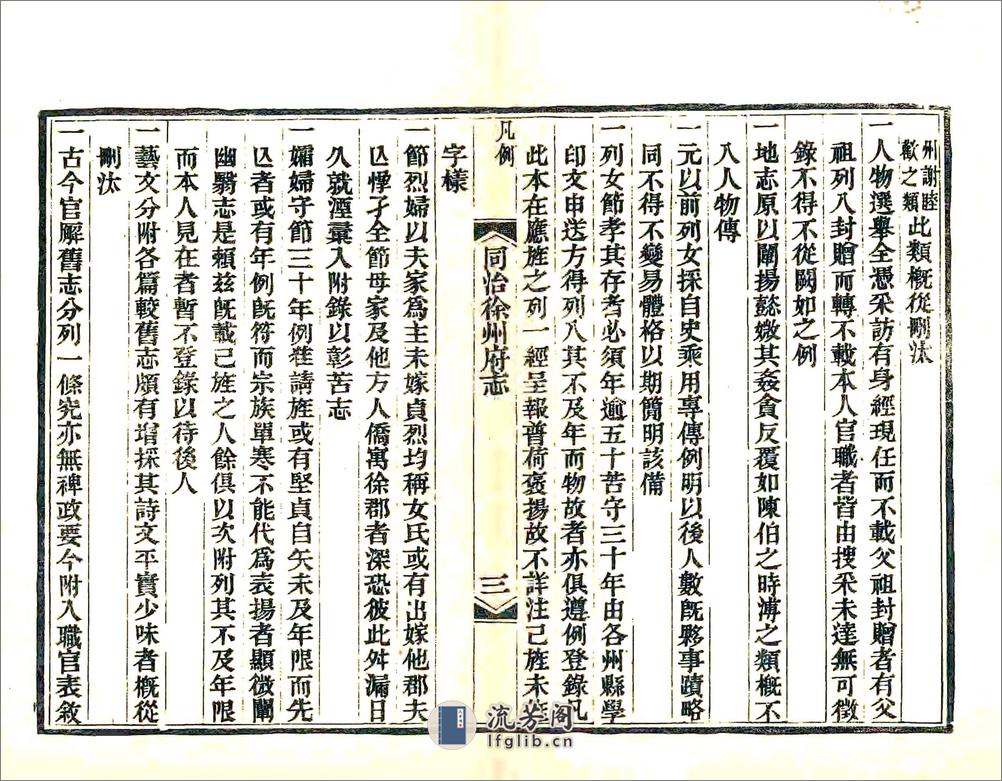 州謝睦
歙之類此類概從刪汰
一人物選舉全憑采訪有身經現任而不載父祖封贈者有父
祖列入封贈而轉不載本人官職者皆由搜采未達無可徵
錄不得不從闕如之例
一地志原以闡揚懿媺其姦貪反覆如陳伯之時溥之類概不
入人物傳
一元以前列女採自史乘用專傳例明以後人數旣夥事蹟略
同不得不變易體格以期簡明該備
一列女節孝其存者必須年逾五十苦守三十年由各州縣學
印文申送方得列入其不及年而物故者亦俱遵例登錄凡
此本在應旌之列一經呈報普荷褒揚故不詳注已旌未旌
字樣
凡例
同治徐州府志
三
一節烈婦以夫家爲主未嫁貞烈均稱女氏或有出嫁他郡夫
亾悸孑全節母家及他方人僑寓徐郡者深恐彼此舛漏日
久就湮彙入附錄以彰苦志
一孀婦守節三十年例准請旌或有堅貞自矢未及年限而先
亾者或有年例旣符而宗族單寒不能代爲表揚者顯微闡
幽翳志是賴茲旣載已旌之人餘俱以次附列其不及年限
而本人見在者暫不登錄以待後人
一藝文分附各篇較舊志頗有增採其詩文平實少味者概從
刪汰
一古今官廨舊志分列一條究亦無裨政要今附入職官表敘
流芳阁
lfglib.cn